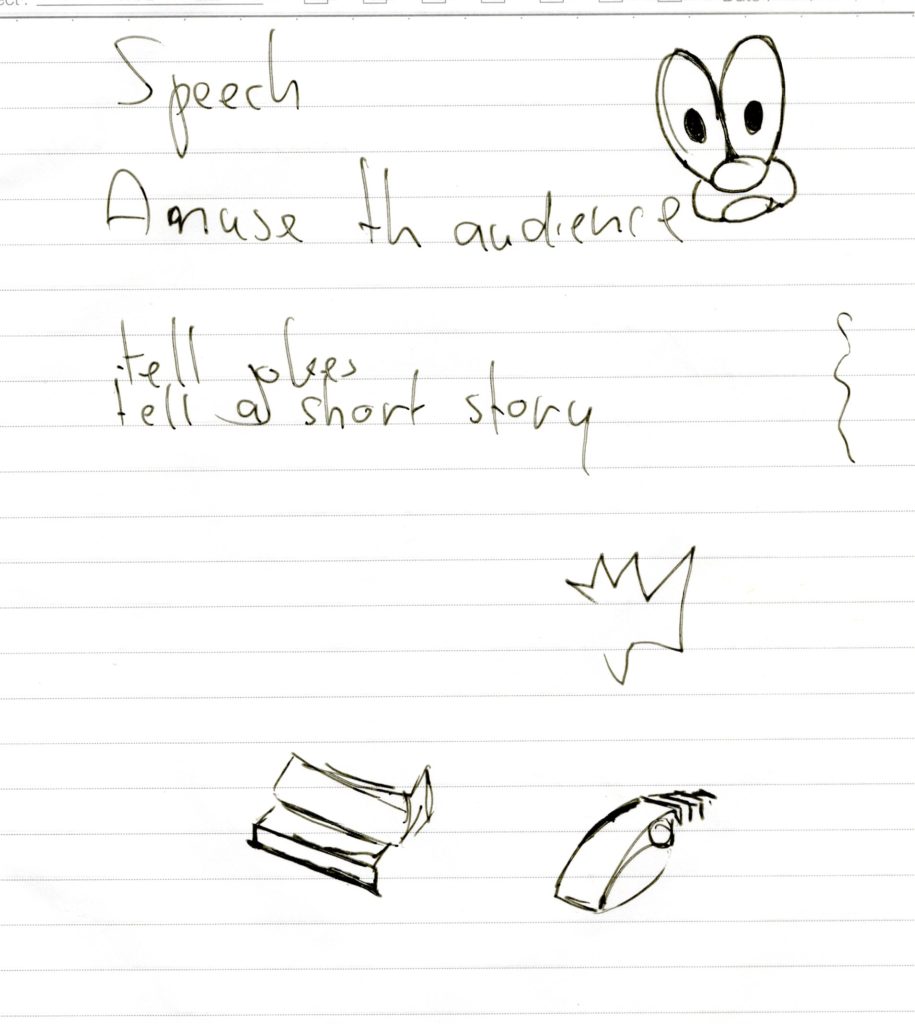 Speech
Amuse th audience
tell jokes
tell a short story